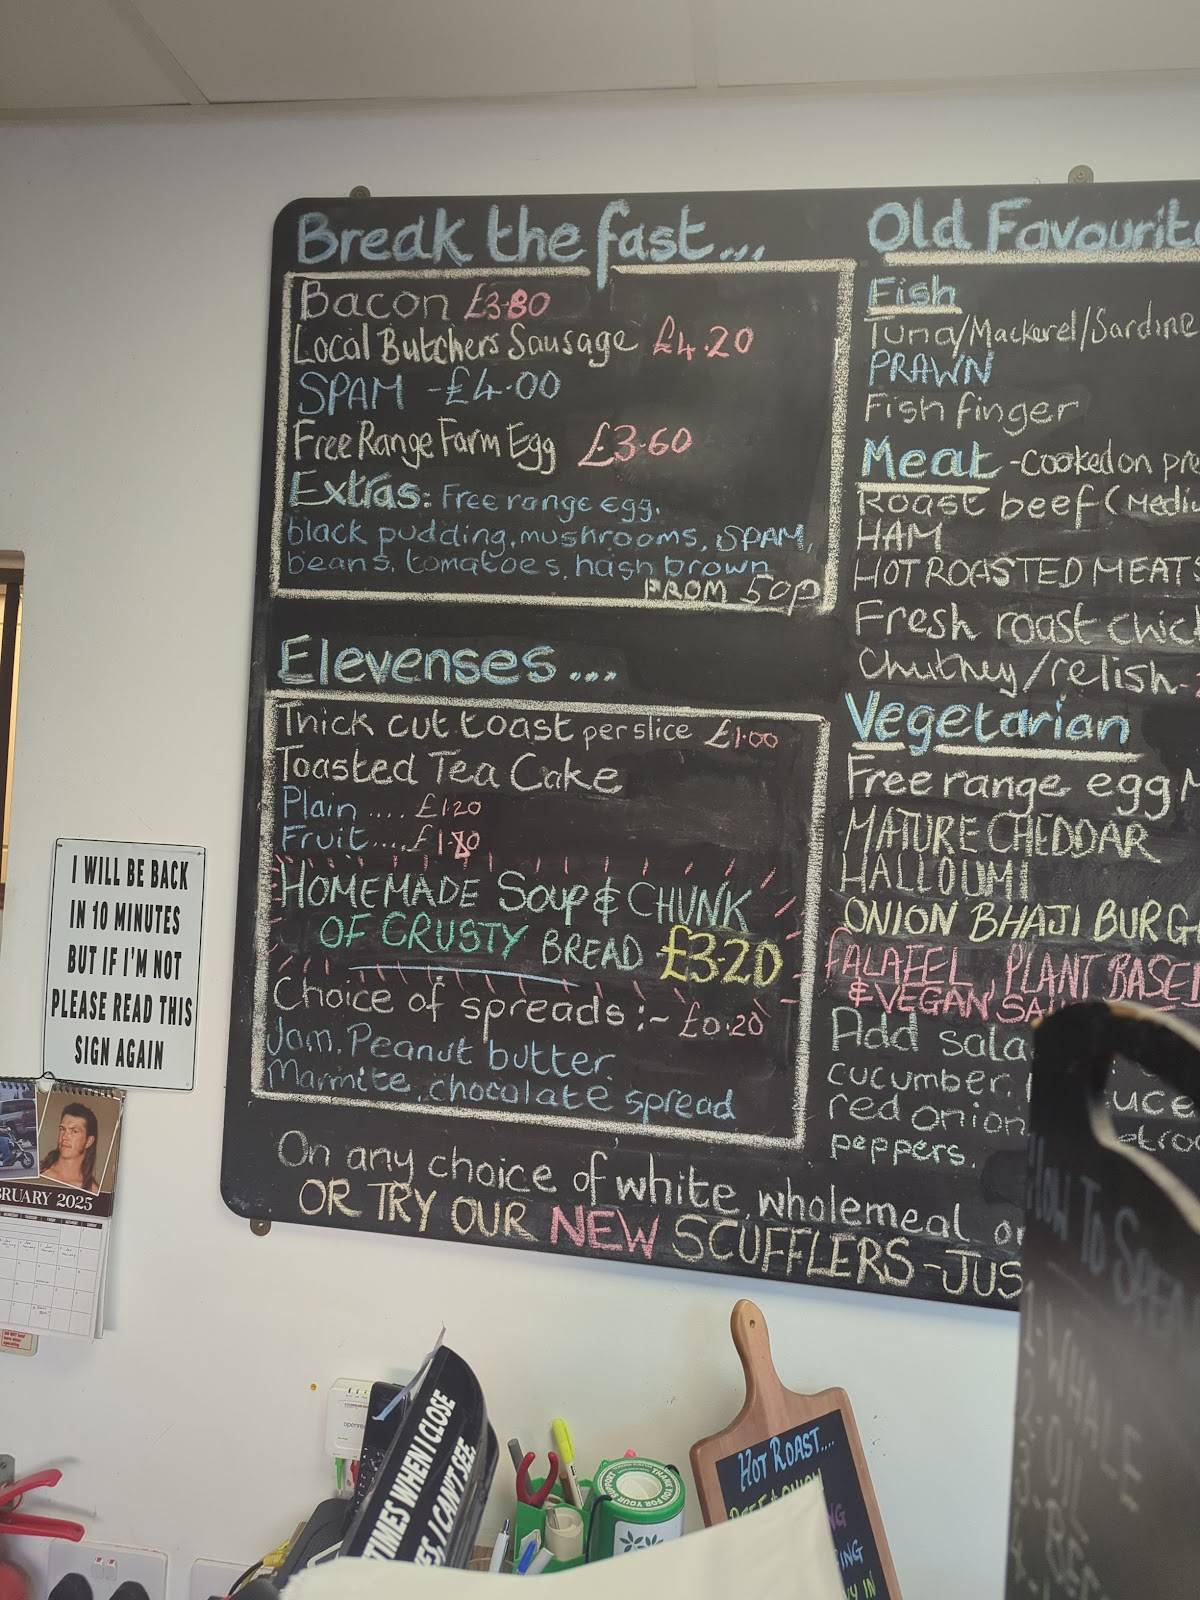 Break the fast...
Bacon £3.80
Local Butchers Sausage £4.20
SPAM - £4.00
Free Range Farm Egg £3.60
Extras: Free range egg,
black pudding, mushrooms, SPAM,
beans, tomatoes, hash brown
FROM 50p
Elevenses...
Thick cut toast per slice £1.00
Toasted Tea Cake
Plain .... £1.20
Fruit.... £1.80
HOMEMADE Soup & CHUNK
OF CRUSTY BREAD £3.20
Choice of spreads :- £0.20
Jam, Peanut butter,
Marmite, chocolate spread
On any choice of white, wholemeal or
OR TRY OUR NEW SCUFFLERS - JUS
Old Favourit
Fish
Tuna/Mackerel/Sardine
PRAWN
Fish finger
Meat - cooked on pre
Roast beef (Mediu
HAM
HOT ROASTED MEATS
Fresh roast chic
Chutney/relish
Vegetarian
Free range egg
MATURE CHEDDAR
HALLOUMI
ONION BHAJI BURG
FALAFEL, PLANT BASE
& VEGAN
Add sala
cucumber,
red onion
peppers.
I WILL BE BACK
IN 10 MINUTES
BUT IF I'M NOT
PLEASE READ THIS
SIGN AGAIN
BRUARY 2025
TIMES WHEN I CLOSE
ES, I CAN'T SEE.
THANK YOU FOR YOUR SUPPORT
HOT ROAST....